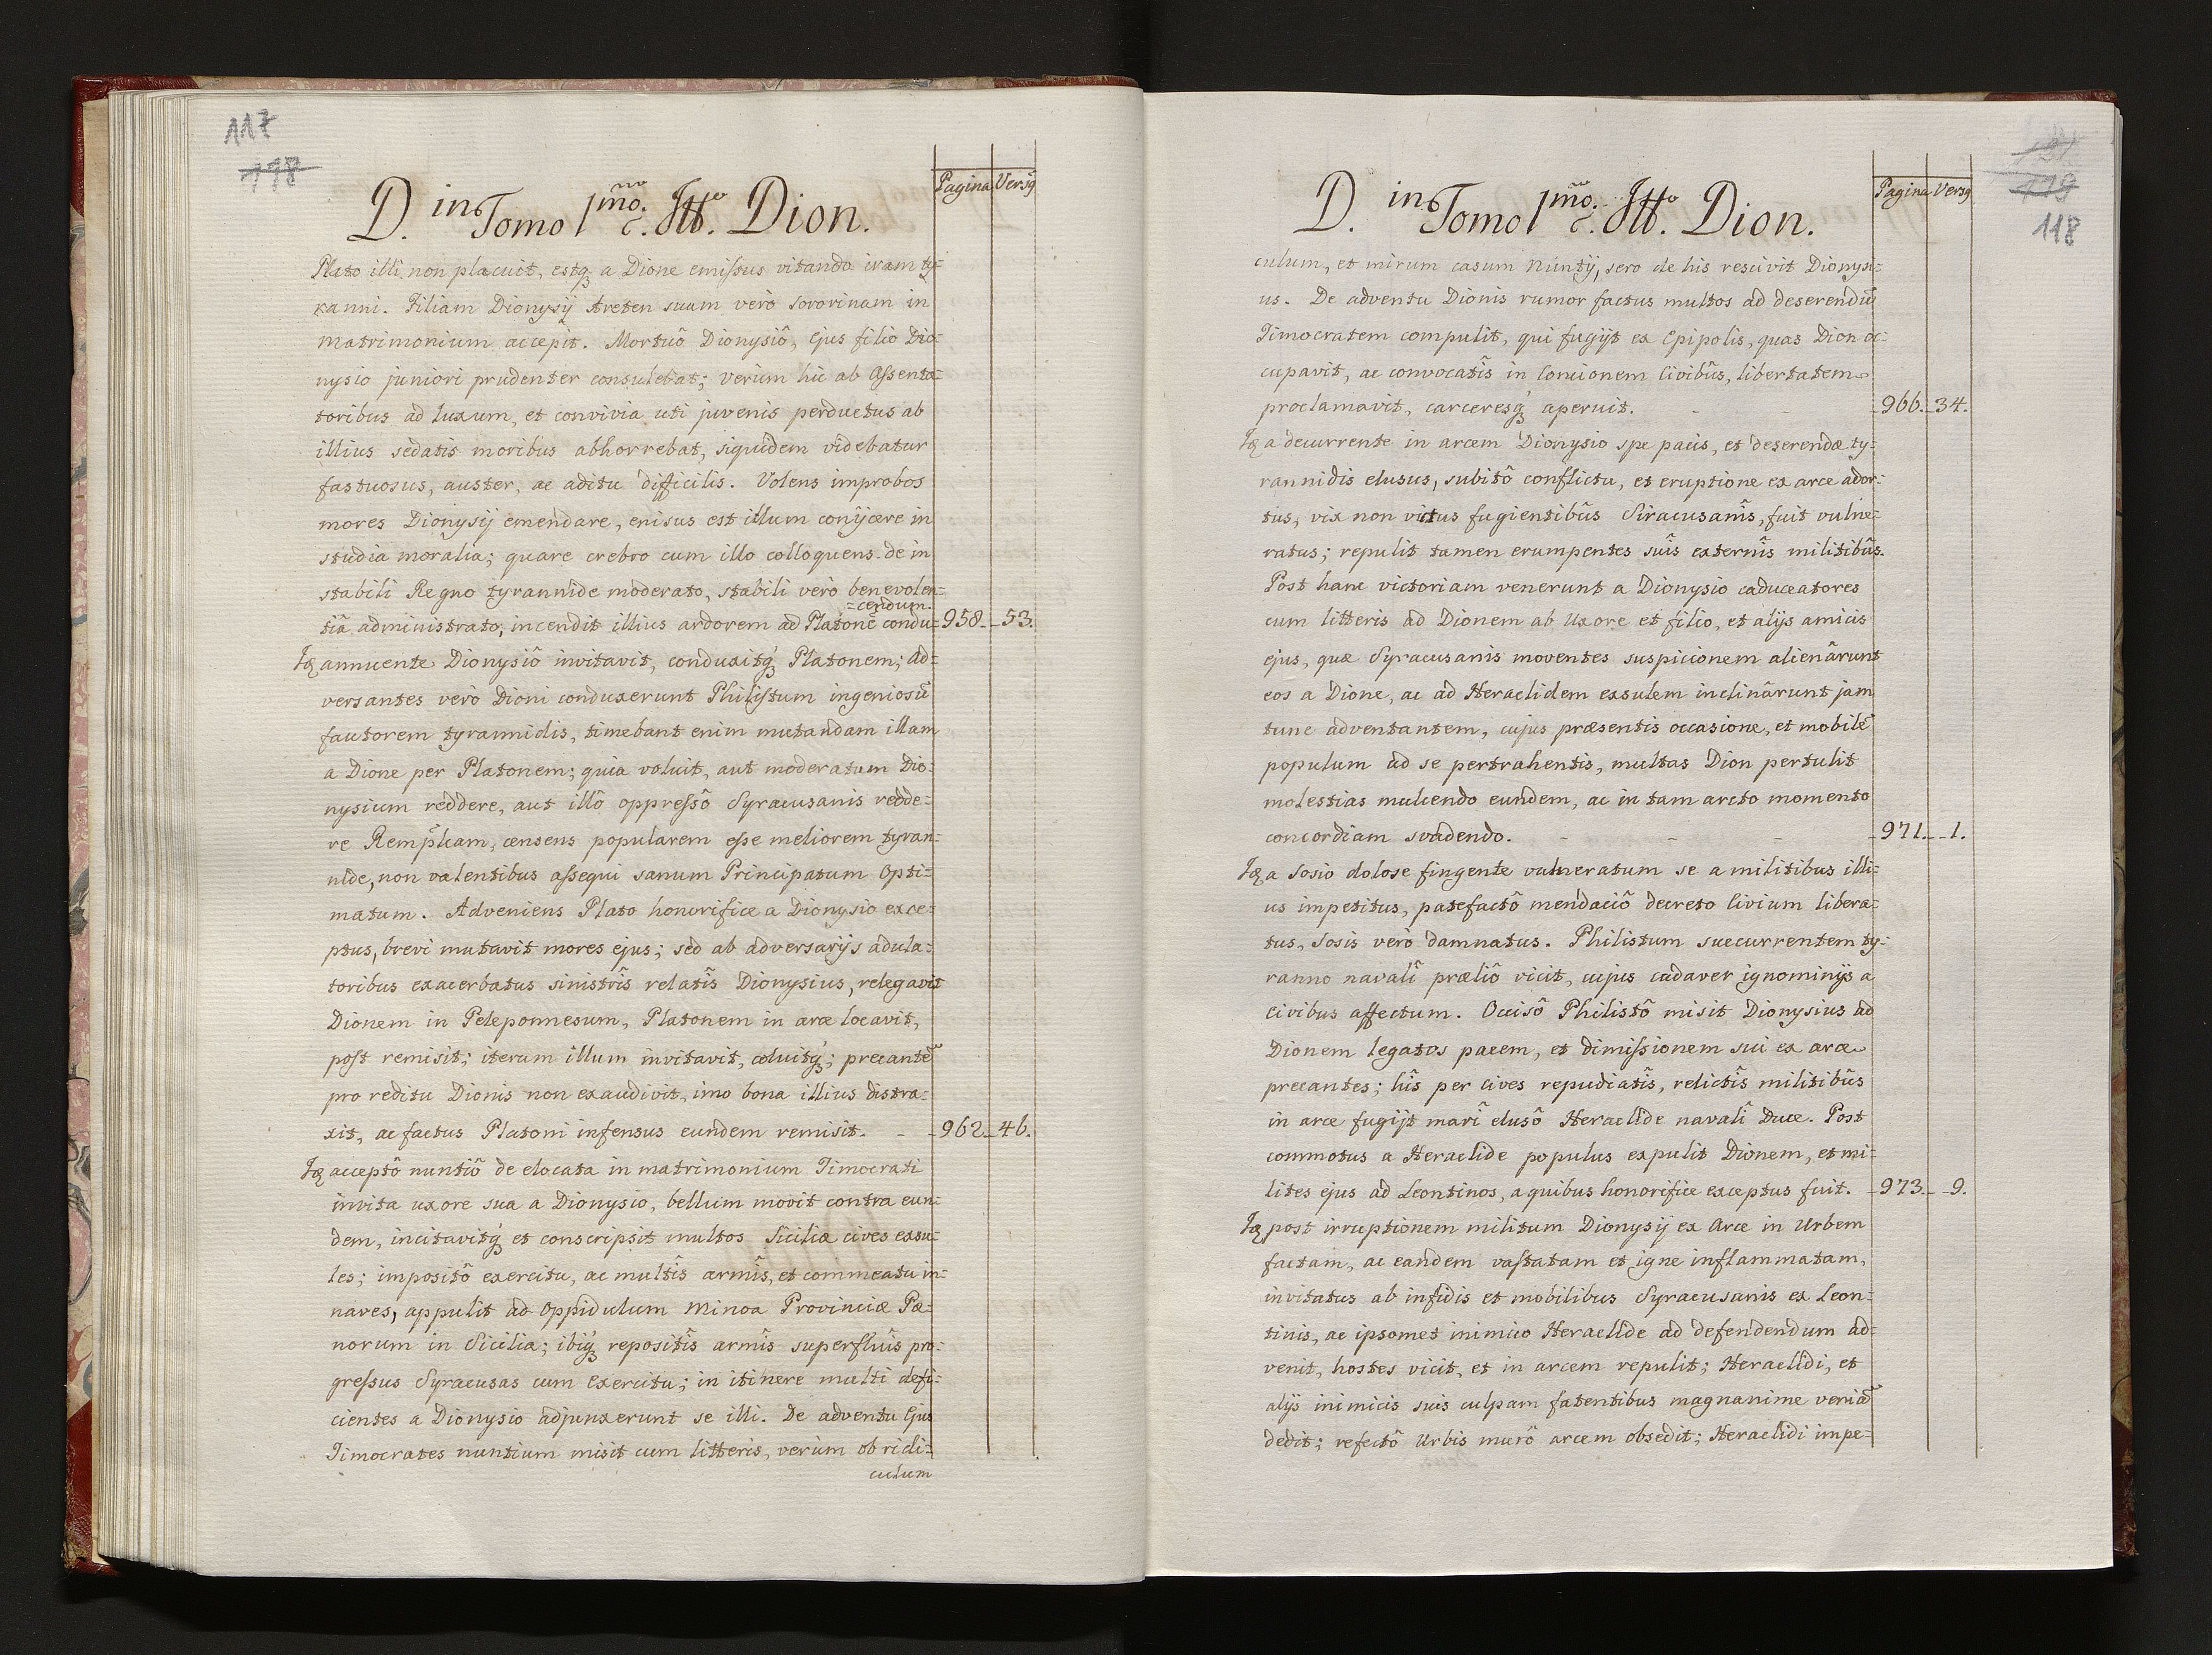 117
118
Pagina Versq
D. in Tomo 1mo. c. Itto. Dion.
Plato illi non placuit, estq a Dione emissus vitando iram ty=
ranni. Filiam Dionysij Areten suam verò sororinam in
matrimonium accepit. Mortuô Dionysiô, Ejus filio Dio=
nysio juniori prudenter consulebat; verùm hic ab Assenta=
toribus ad luxum, et convivia uti juvenis perductus ab
illius sedatis moribus abhorrebat, siquidem videbatur
fastuosus, auster, ac aditu difficilis. Volens improbos
mores Dionysij emendare, enisus est illum conijcere in
studia moralia; quare crebro cum illo colloquens de in
stabili Regno tyrannide moderato, stabili verò benevolen=
=cendum.
tiâ administrato, incendit illius ardorem ad Platonē condu= 958. 53.
Iq annuente Dionysiô invitavit, conduxitq́ Platonem; ad=
versantes verò Dioni conduxerunt Philistum ingeniosū
fautorem tyrannidis, timebant enim mutandam illam
a Dione per Platonem; quia voluit, aut moderatum Dio=
nysium reddere, aut illô oppressô Syracusanis redde=
re Rempl̃icam, censens popularem esse meliorem tyran=
nide, non valentibus assequi sanum Principatum Opti=
matum. Adveniens Plato honorifice a Dionysio exce=
ptus, brevi mutavit mores ejus; sed ab adversarijs adula=
toribus exacerbatus sinistrîs relatîs Dionysius, relegavit
Dionem in Peleponnesum, Platonem in arce locavit,
post remisit; iterum illum invitavit, coluitq́; precantē
pro reditu Dionis non exaudivit, imo bona illius distra=
xit, ac factus Platoni infensus eundem remisit. - 962. 46.
Iq acceptô nuntiô de elocata in matrimonium Timocrati
invita uxore sua a Dionysio, bellum movit contra eun=
dem, incitavitq́ et conscripsit multos Siciliæ cives exsu=
les; impositô exercitu, ac multîs armîs, et commeatu in=
naves, appulit ad Oppidulum Minoa Provinciæ Pæ=
norum in Sicilia; ibiq́ repositîs armîs superfluîs pro=
gressus Syracusas cum Exercitu; in itinere multi defi=
cientes a Dionysio adjunxerunt se illi. De adventu Ejus
Timocrates nuntium misit cum litteris, verùm ob ridi=
culum
118
Pagina Versq
D. in Tomo 1mo. c. Itto. Dion.
culum, et mirum casum Nuntij, sero de his rescivit Dionysi=
us. De adventu Dionis rumor factus multos ad deserendū
Timocratem compulit, qui fugijt ex Epipolis, quas Dion oc=
cupavit, ac convocatîs in Concionem Civibûs, libertatem
proclamavit, carceresq́ aperuit. - - 966. 34.
Iq a decurrente in arcem Dionysio spe pacis, et deserendæ ty=
rannidis elusus, subitô conflictu, et eruptione ex arce ador=
tus, vix non victus fugientibûs Siracusanîs, fuit vulne=
ratus; repulit tamen erumpentes suîs externîs militibûs.
Post hanc victoriam venerunt a Dionysio caduceatores
cum litteris ad Dionem ab Uxore et filio, et alijs amicis
ejus, quæ Syracusanis moventes suspicionem alienârunt
eos a Dione, ac ad Heraclidem exsulem inclinârunt jam
tunc adventantem, cujus præsentis occasione, et mobilē
populum ad se pertrahentis, multas Dion pertulit
molestias mulcendo eundem, ac in tam arcto momento
concordiam svadendo. - - - 971. 1.
Iq a Sosio dolose fingente vulneratum se a militibus illi=
us impetitus, patefactô mendaciô decreto Civium libera=
tus, Sosis verò damnatus. Philistum succurrentem ty=
ranno navalî præliô vicit, cujus cadaver ignominijs a
Civibus affectum. Occisô Philistô misit Dionysius ad
Dionem legatos pacem, et dimissionem sui ex arce
precantes; hîs per cives repudiatîs, relictîs militibûs
in arce fugijt marî elusô Heraclide navalî Duce. Post
commotus a Heraclide populus expulit Dionem, et mi=
lites ejus ad Leontinos, a quibus honorifice exceptus fuit. 973. 9.
Iq post irruptionem militum Dionysij ex Arce in Urbem
factam, ac eandem vastatam et igne inflammatam,
invitatus ab infidis et mobilibus Syracusanis ex Leon=
tinis, ac ipsomet inimico Heraclide ad defendendum ad=
venit, hostes vicit, et in arcem repulit; Heraclidi, et
alijs inimicis suis culpam fatentibus magnanime veniā
dedit; refectô Urbis murô arcem obsedit; Heraclidi impe=